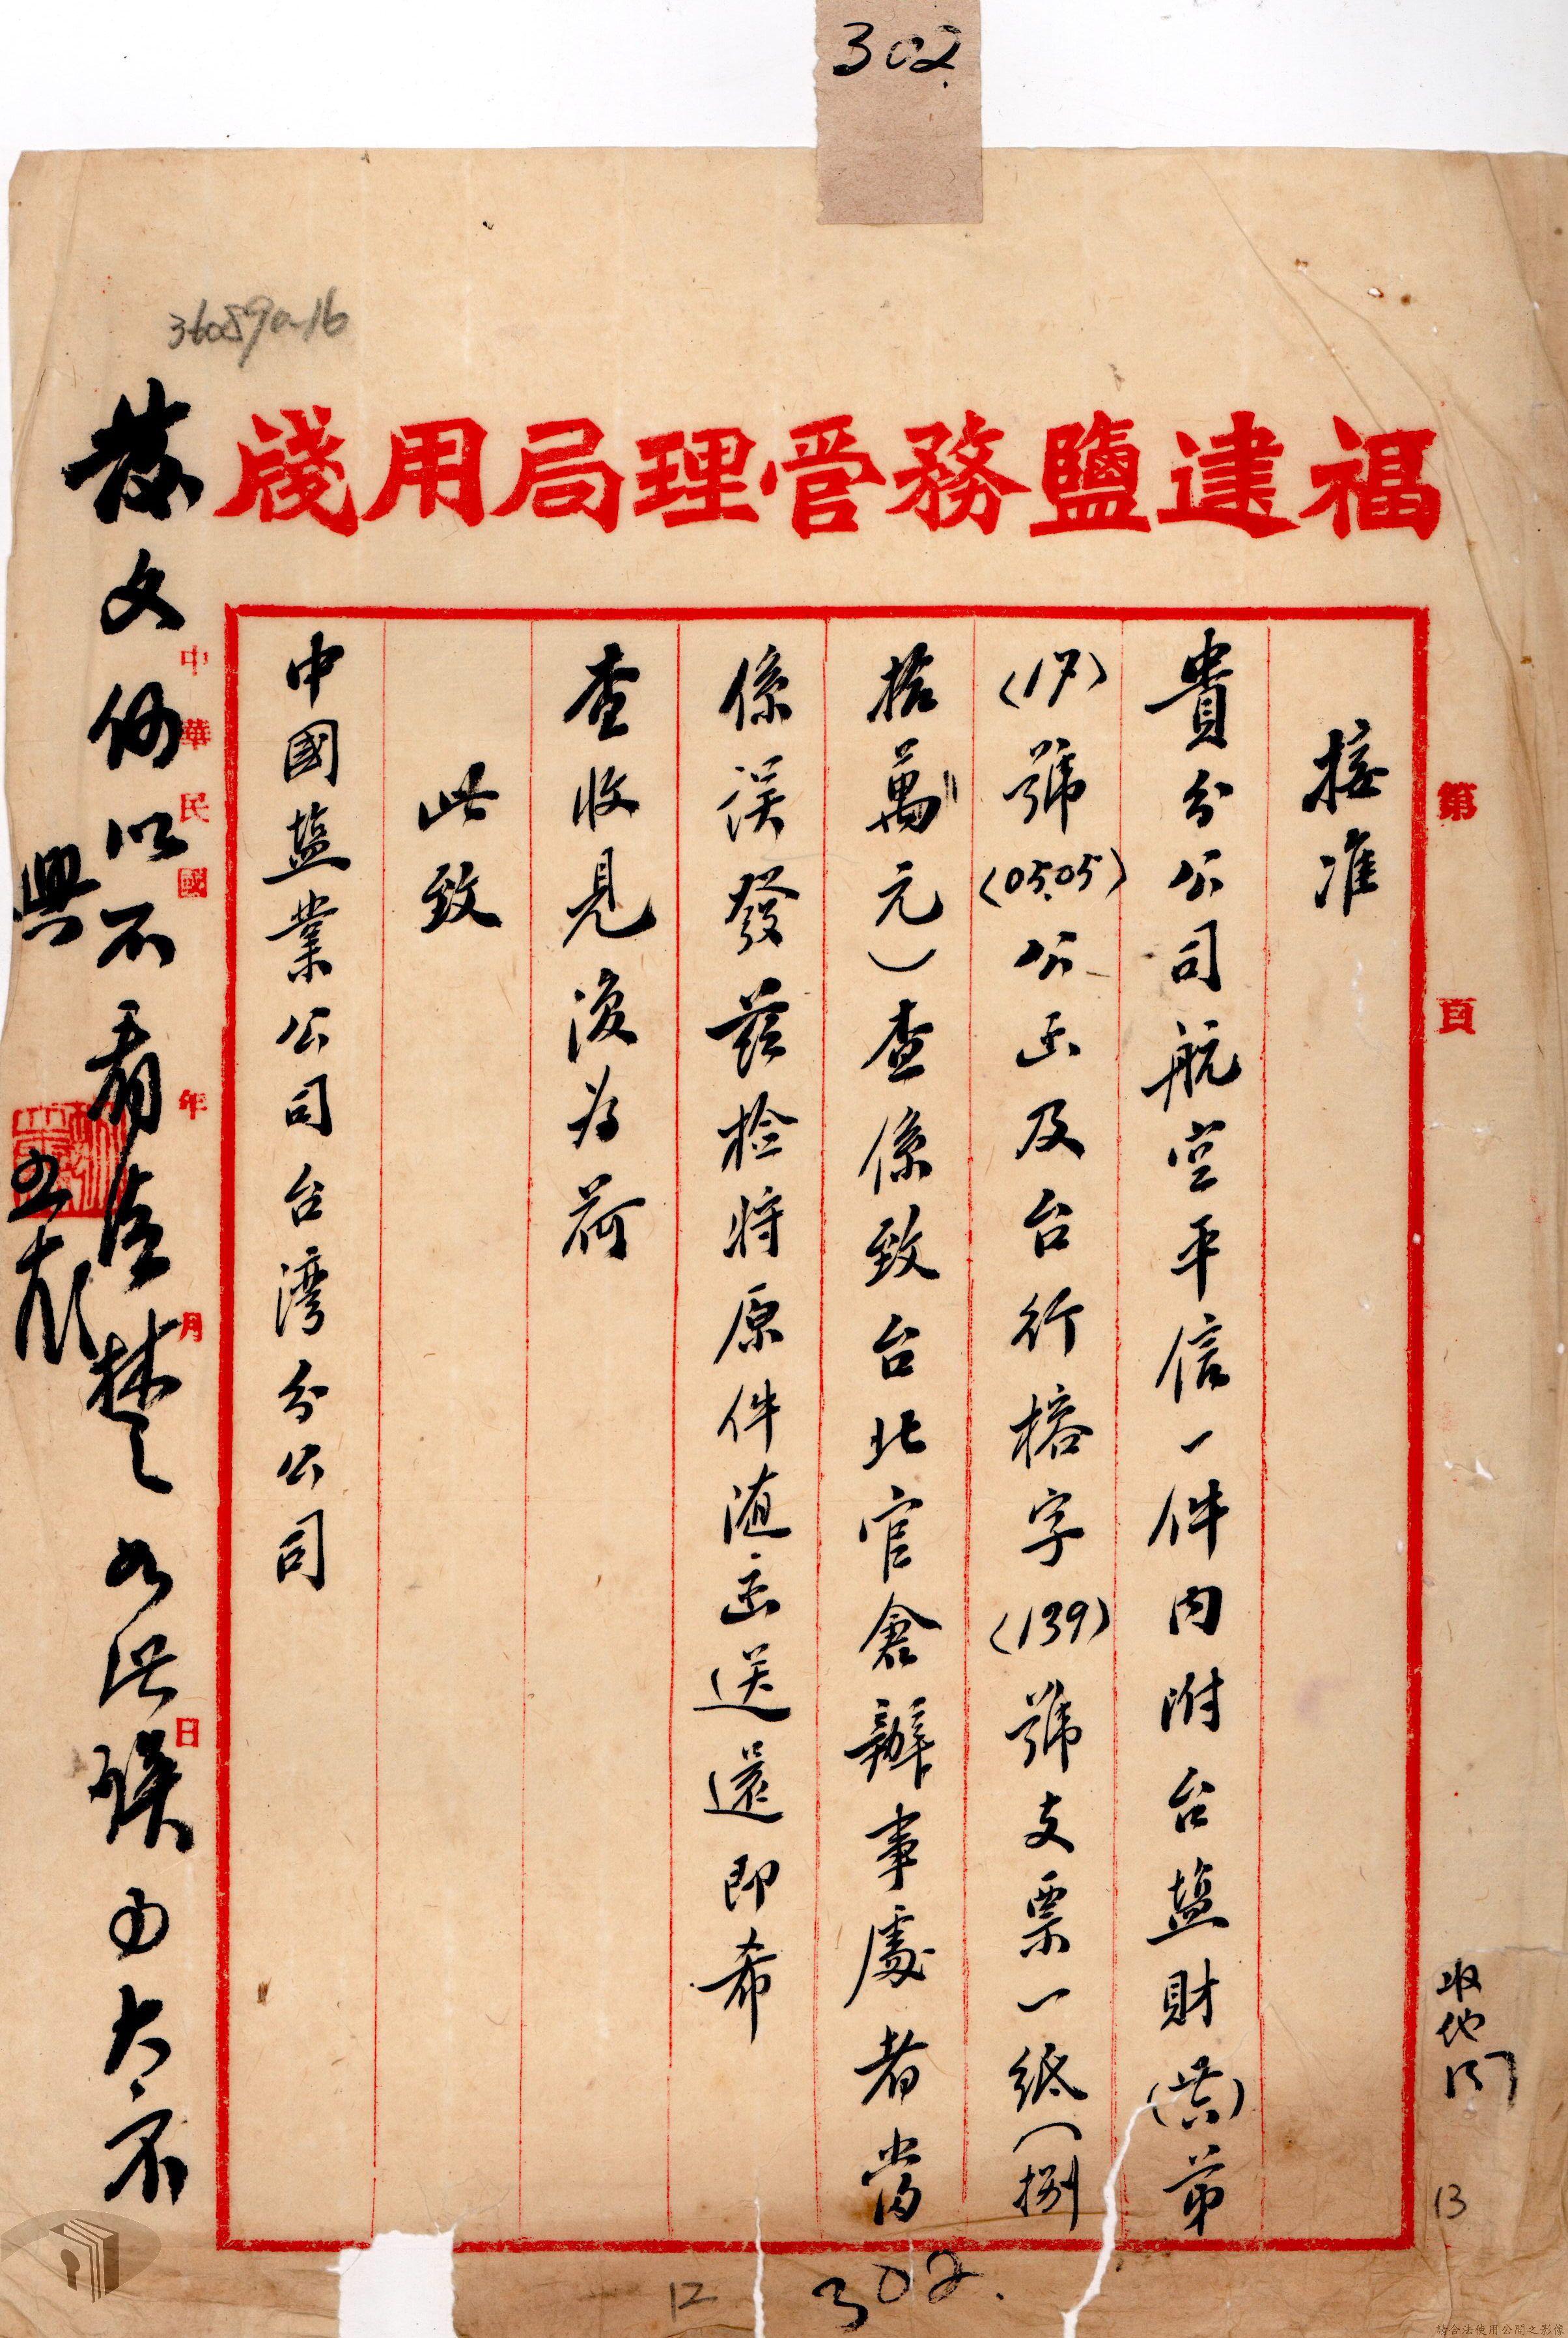 302.
36089a-16
福建鹽務管理局用牋
第 頁
接准
貴分公司航空平信一件內附台塩財(卅六)第
(17)號(0505)公函及台行榕字(139)號支票一紙(捌
拾萬元)查係致台北官倉辦事處者當
係誤發茲檢將原件随函送還即希
查收見復為荷
此致
中國塩業公司台湾分公司
中華民國 年 月 日
發文何以不看清楚如此誤由大不
13
12
302.
請合法使用公開之影像